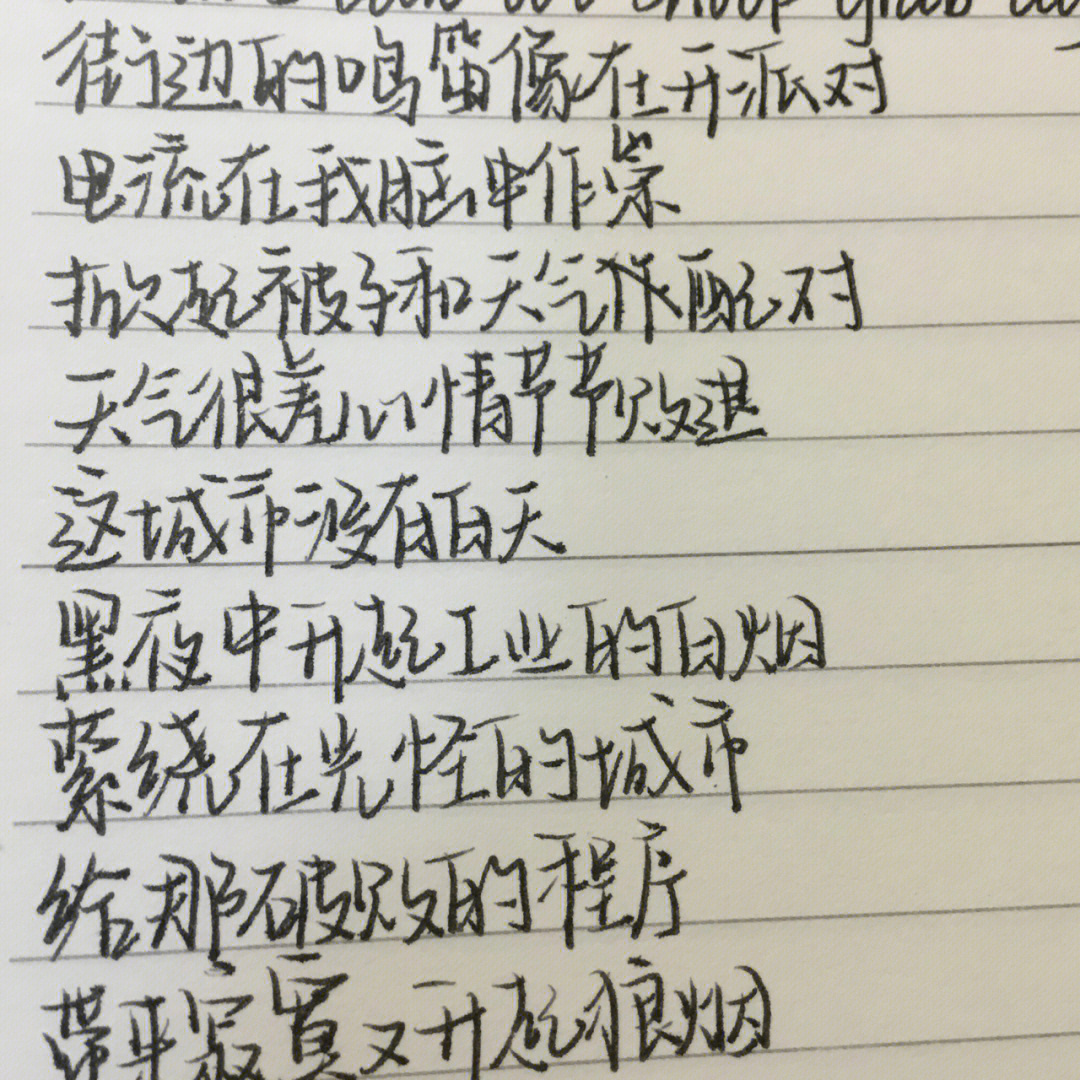 街边的鸣笛像在开派对
电流在我脑中作祟
掀起被子和天气作配对
天气很差心情节节败退
这城市没有白天
黑夜中升起工业的白烟
萦绕在光怪的城市
给那破败的程序
带来寂寞又升起狼烟